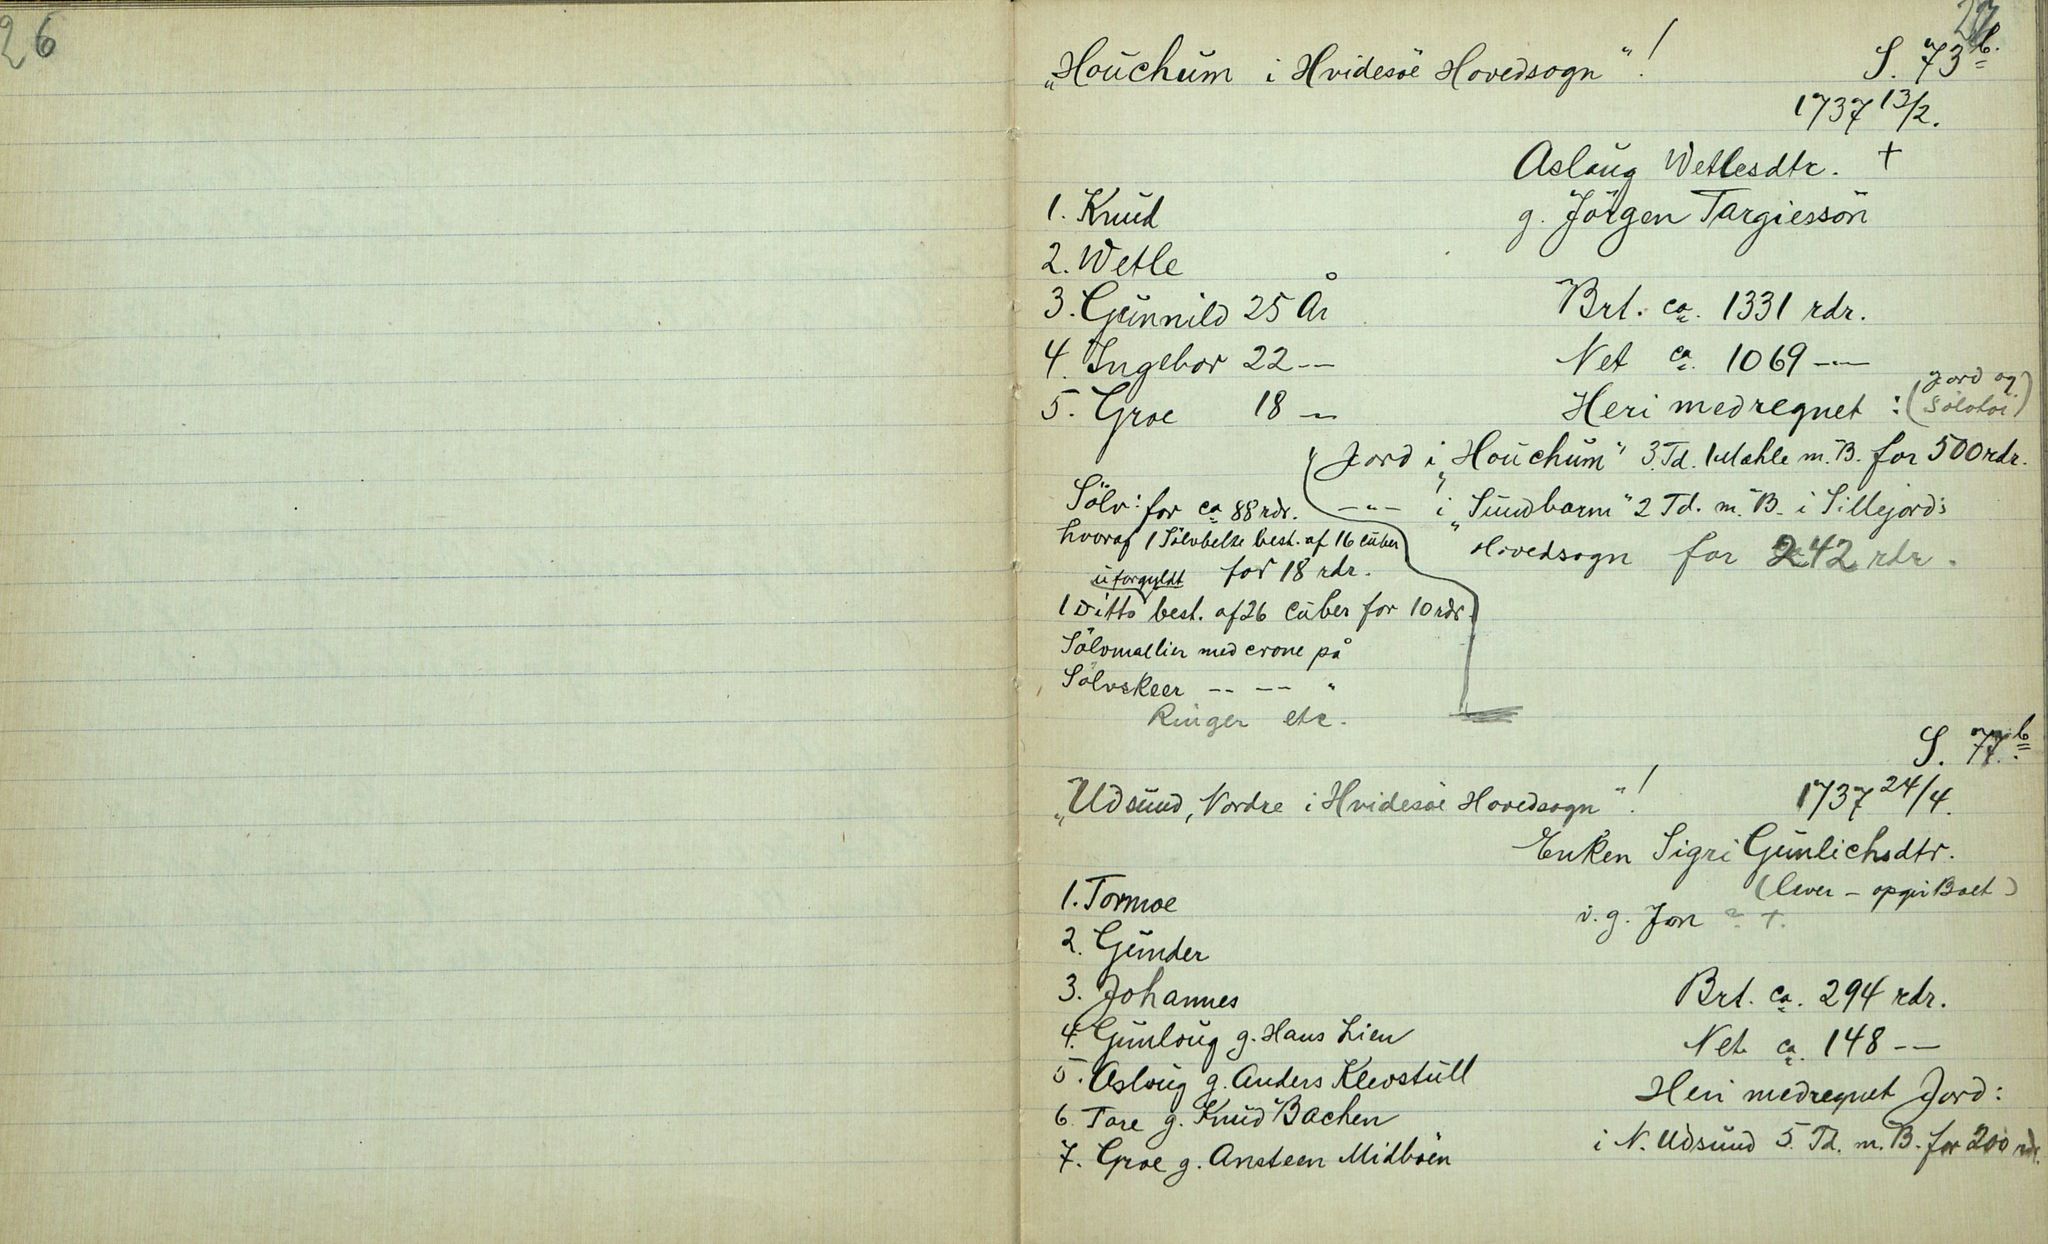 26
27
„Houchum i Hvidesøe Hovedsogn“!
S. 73b.
1737 13/2.
Aslaug Wetlesdtr. +
g. Jörgen Targiessön
1. Knud
2. Wetle
3. Gunnild 25 År
4. Ingebor 22 --
5. Groe 18 --
Brt. ca. 1331 rdr.
Net ca. 1069 --
Heri medregnet : (Jord og
Sölvtöi)
Jord i „Houchum“ 3 Td. 1 Mæhle m. B. for 500 rdr.
-"- i „Sundbarm“ 2 Td. m. B. i Sillejords
Hovedsogn for 242 rdr.
Sölv: for ca 88 rdr.
hvoraf 1 Sölvbelte best. af 16 cuber
uforgyldt for 18 rdr.
1 Ditto best. af 26 cuber for 10 rdr.
Sölvmallier med crone på
Sölvskeer -- -- "
Ringer etc.
S. 77b.
„Udsund, Nordre i Hvidesøe Hovedsogn“!
1737 24/4.
Enken Sigri Gunlichsdtr.
(lever - opgir Boet)
v. g. Jon ? +.
1. Tormoe
2. Gunder
3. Johannes
4. Gunloug g. Hans Lien
5. Asloug g. Anders Klevstull
6. Tore g. Knud Bachen
7. Groe g. Ansteen Midböen
Brt. ca. 294 rdr.
Net ca. 148 --
Heri medregnet Jord:
i N. Udsund 5 Td. m. B. for 200 rdr.